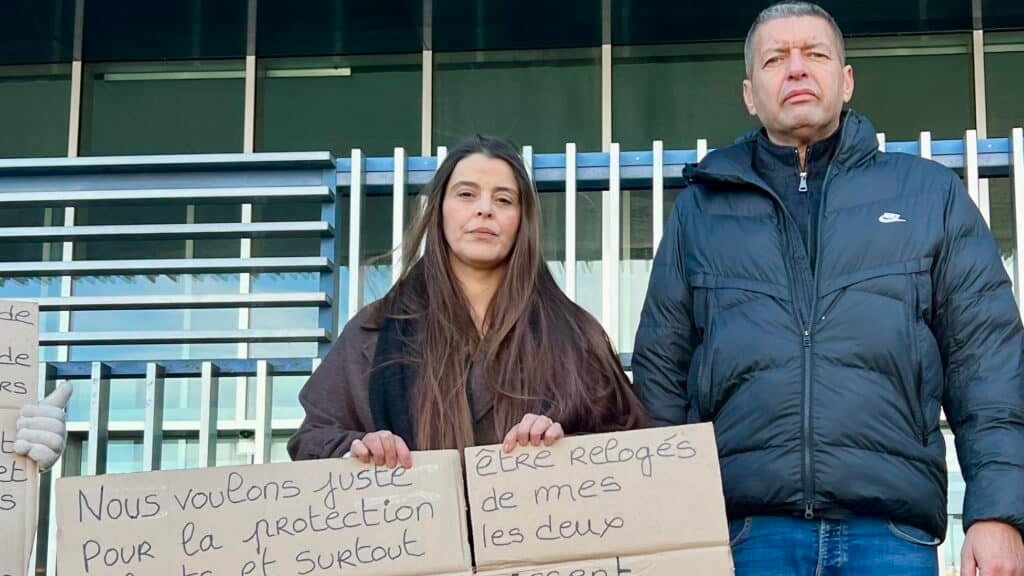 de
de
rs
t
et
s
Nous voulons juste
Pour la protection
et surtout
être relogés
de mes
les deux